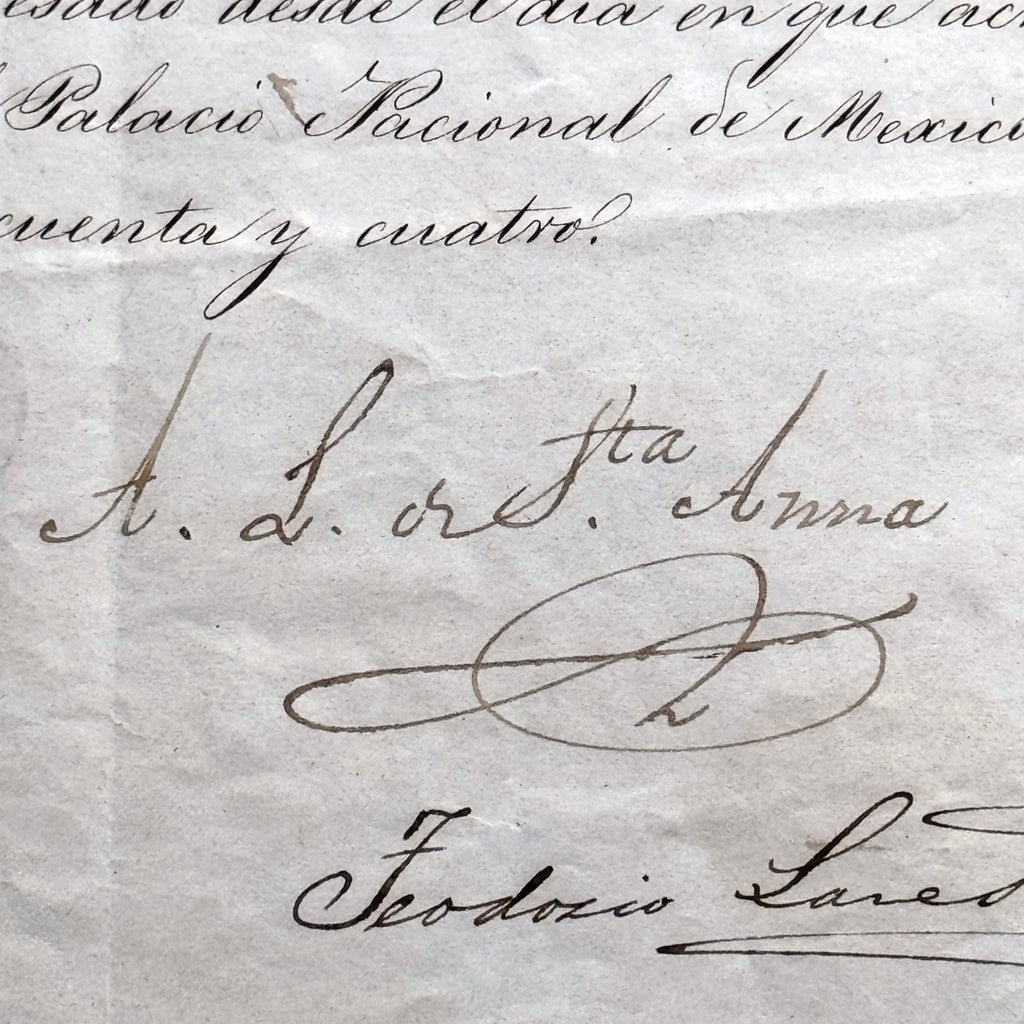 esado desde el dia en que
Palacio Nacional de Mexico
cuenta y cuatro.
A. L. de Sta. Anna
Teodosio Lares